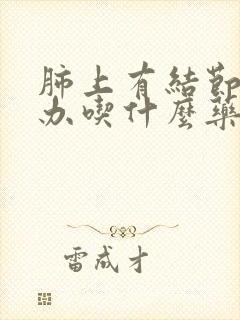 肺上有結節
办喫什麼藥
雷成才